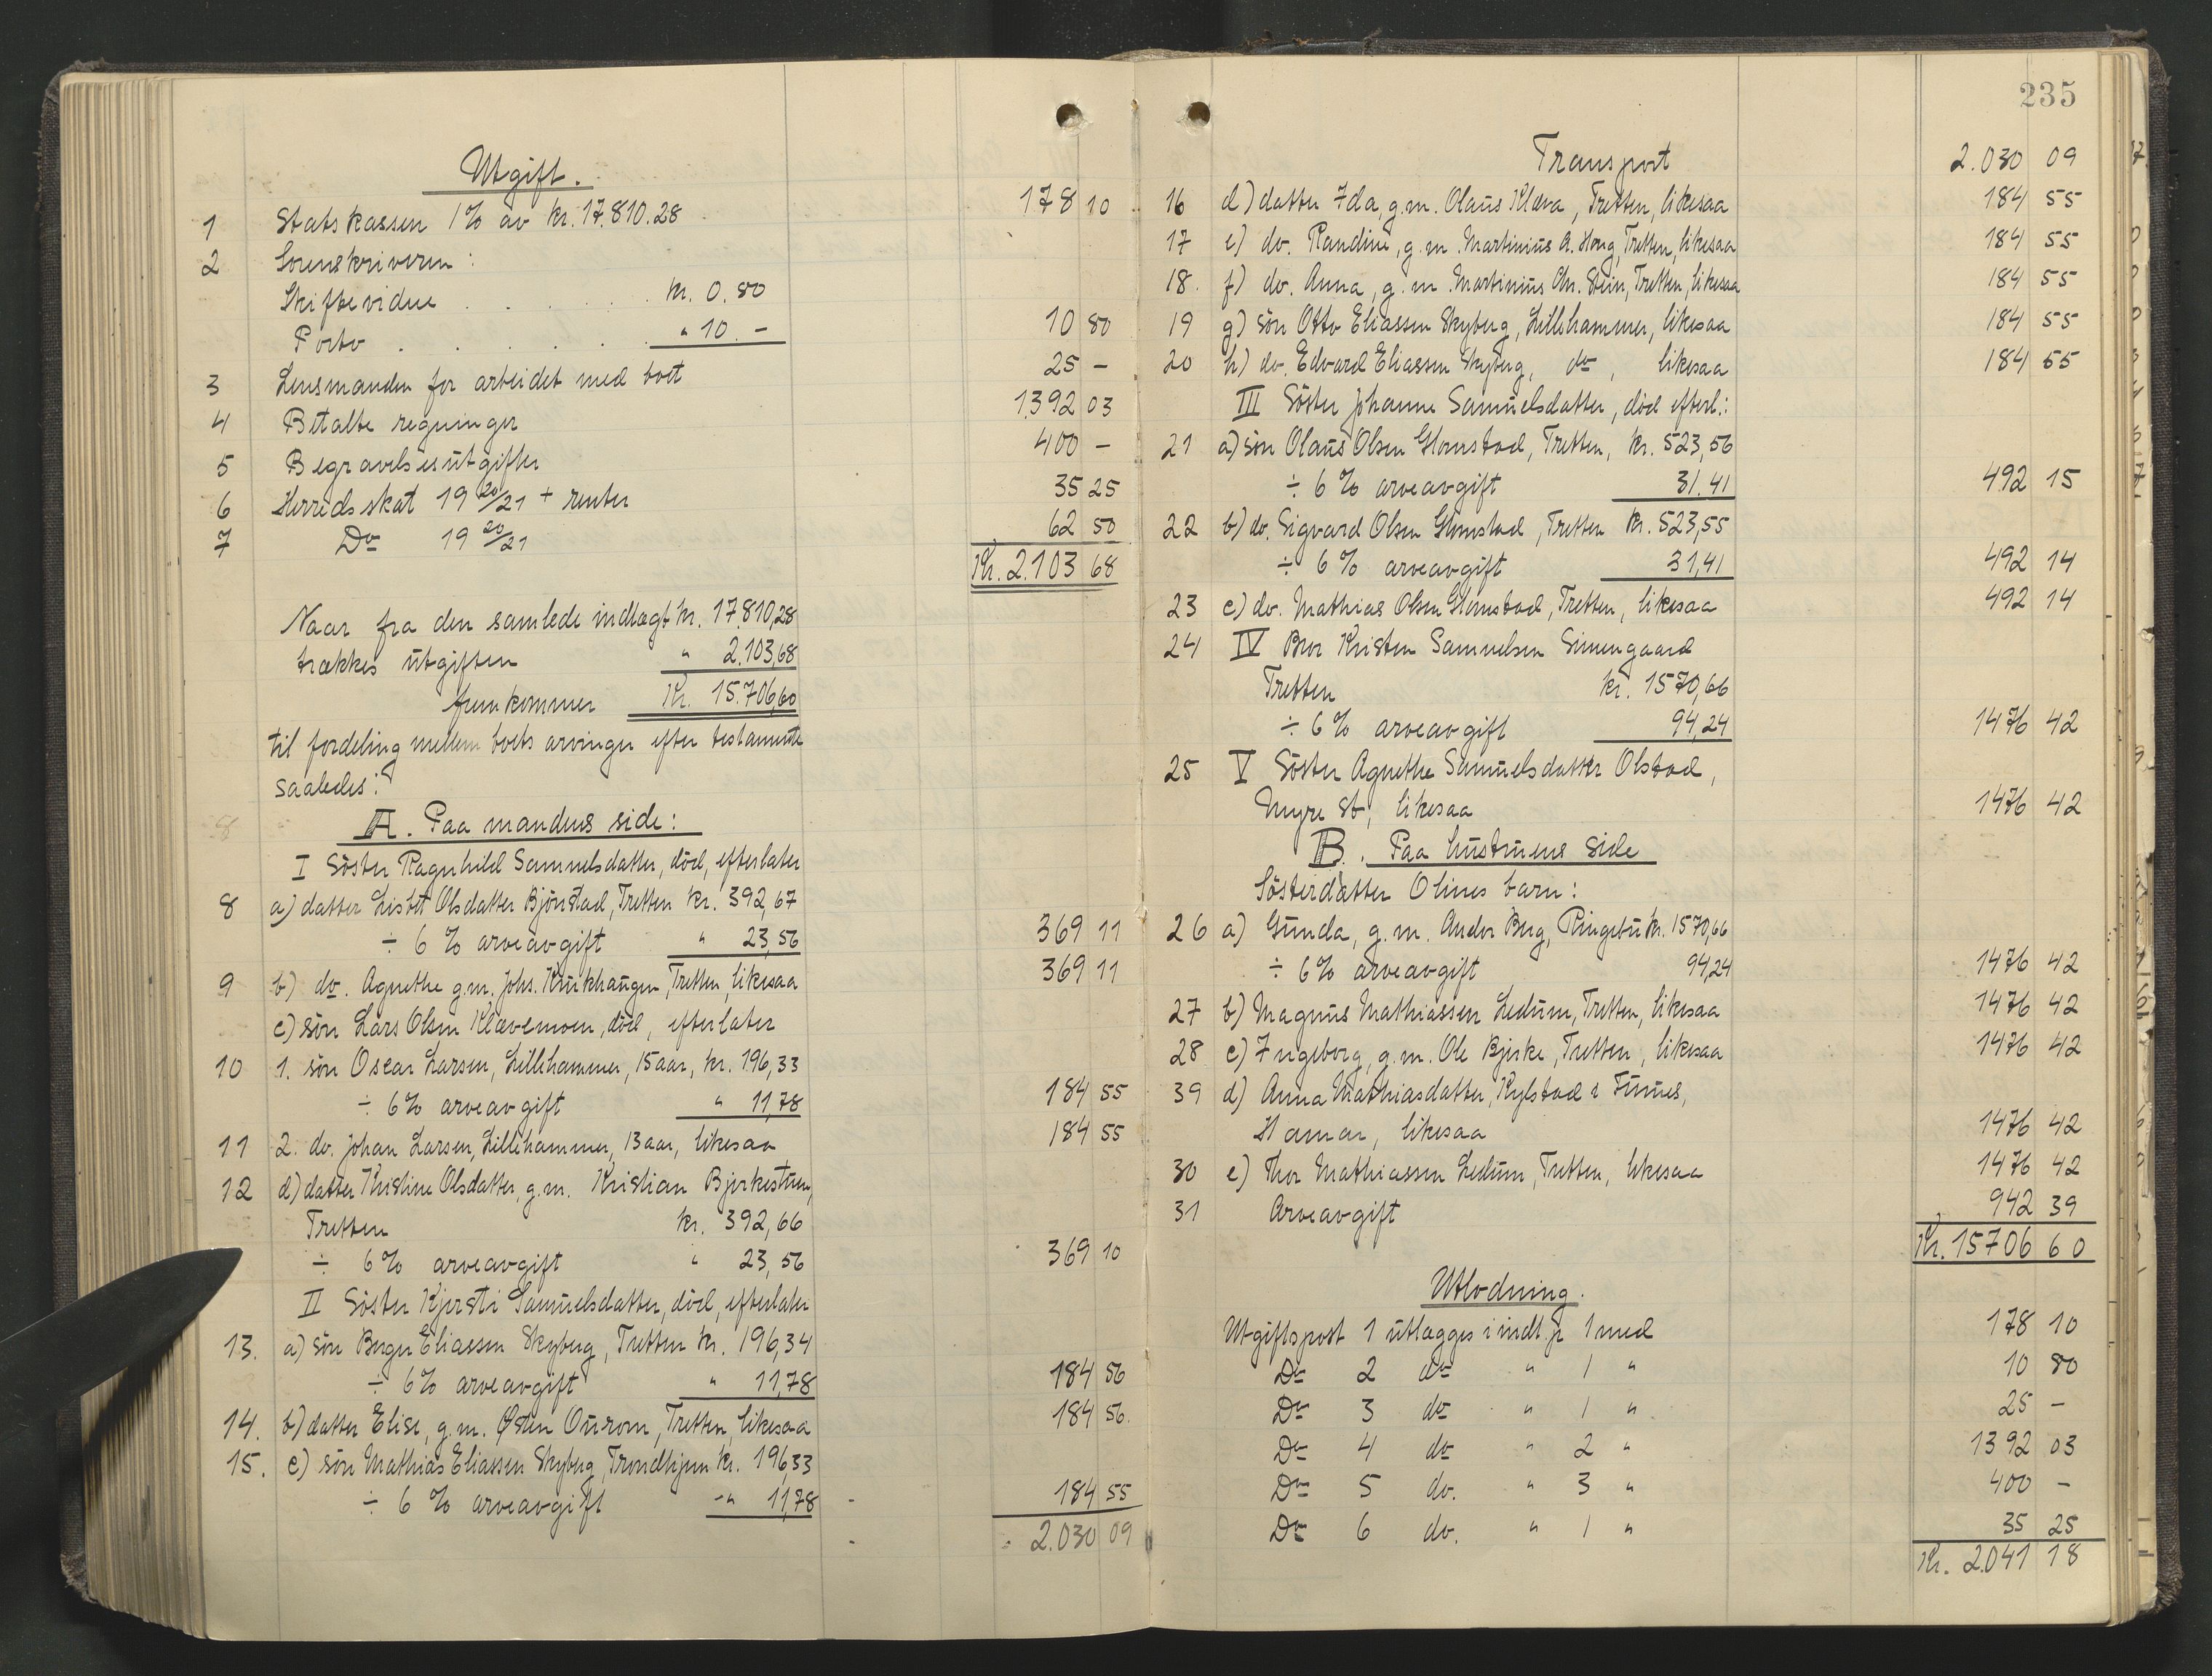 Utgift.
1 Statskassen 1% av kr. 17.810.28 178 10
2 Sorenskriveren:
Skiftevidne . . . . kr. 0.80
Porto . . . . . " 10. - 10 80
3 Lensmanden for arbeidet med boet 25 -
4 Betalte regninger 1392 03
5 Begravelsesutgifter 400 -
6 Herredsskat 19 20/21 + renter 35 25
7 Do 19 20/21 62 50
Kr. 2.103 68
Naar fra den samlede indtægt kr. 17.810,28
trækkes utgiften " 2.103,68
fremkommer Kr. 15.706,60
til fordeling mellem boets arvinger efter testamente
saaledes:
A. Paa mandens side:
I Söster Ragnhild Samuelsdatter, död, efterlater
8 a) datter Lisbet Olsdatter Björnstad, Tretten kr. 392,67
÷ 6% arveavgift " 23,56 369 11
9 b) do. Agnethe g.m. Johs. Krukhaugen, Tretten, likesaa 369 11
c) sön Lars Olsen Klævemoen, död, efterlater
10 1. sön Oscar Larsen, Lillehammer, 15 aar, kr. 196,33
÷ 6% arveavgift " 11,78 184 55
11 2. do. Johan Larsen, Lillehammer, 13 aar, likesaa 184 55
12 d) datter Kristine Olsdatter, g.m. Kristian Bjerkestuen,
Tretten kr. 392,66
÷ 6% arveavgift " 23,56 369 10
II Söster Kjersti Samuelsdatter, död, efterlater
13. a) sön Birger Eliassen Skyberg, Tretten kr. 196,34
÷ 6% arveavgift " 11,78 184 56
14. b) datter Elise, g.m. Østen Ourom, Tretten, likesaa 184 56
15. c) sön Mathias Eliassen Skyberg, Trondhjem kr. 196,33
÷ 6% arveavgift " 11,78 184 55
2.030 09
235
Transport 2.030 09
16 d) datter Ida, g.m. Olaus Klæva, Tretten, likesaa 184 55
17 e) do. Randine, g.m. Martinius A. Hong, Tretten, likesaa 184 55
18. f) do. Anna, g.m. Martinius Chr. Stein, Tretten, likesaa 184 55
19 g) sön Otto Eliassen Skyberg, Lillehammer, likesaa 184 55
20 h) do. Edvard Eliassen Skyberg, do, likesaa 184 55
III Söster Johanne Samuelsdatter, död efterl.:
21 a) sön Olaus Olsen Glomstad, Tretten, kr. 523,56
÷ 6% arveavgift 31.41 492 15
22 b) do. Sigvard Olsen Glomstad, Tretten kr. 523,55
÷ 6% arveavgift 31,41 492 14
23 c) do. Mathias Olsen Glomstad, Tretten, likesaa 492 14
24 IV Bror Kristen Samuelsen Simengaard
Tretten kr. 1570,66
÷ 6% arveavgift 94,24 1476 42
25 V Söster Agnethe Samuelsdatter Olstad,
Myre St, likesaa 1476 42
B. Paa hustruens side
Sösterdatter Olines barn:
26 a) Gunda, g.m. Andor Berg, Ringebu kr. 1570,66
÷ 6% arveavgift 94,24 1476 42
27 b) Magnus Mathiassen Ledum, Tretten, likesaa 1476 42
28 c) Ingeborg, g.m. Ole Bjerke, Tretten, likesaa 1476 42
39 d) Anna Mathiasdatter, Kylstad i Furnes,
Hamar, likesaa 1476 42
30 e) Thor Mathiassen Ledum, Tretten, likesaa 1476 42
31 Arveavgift 942 39
Kr. 15706 60
Utlodning.
Utgiftspost 1 utlægges i indt. p 1 med 178 10
Do 2 do " 1 " 10 80
Do 3 do " 1 " 25 -
Do 4 do " 2 " 1392 03
Do 5 do. " 3 " 400 -
Do 6 do. " 1 " 35 25
Kr. 2.041 18